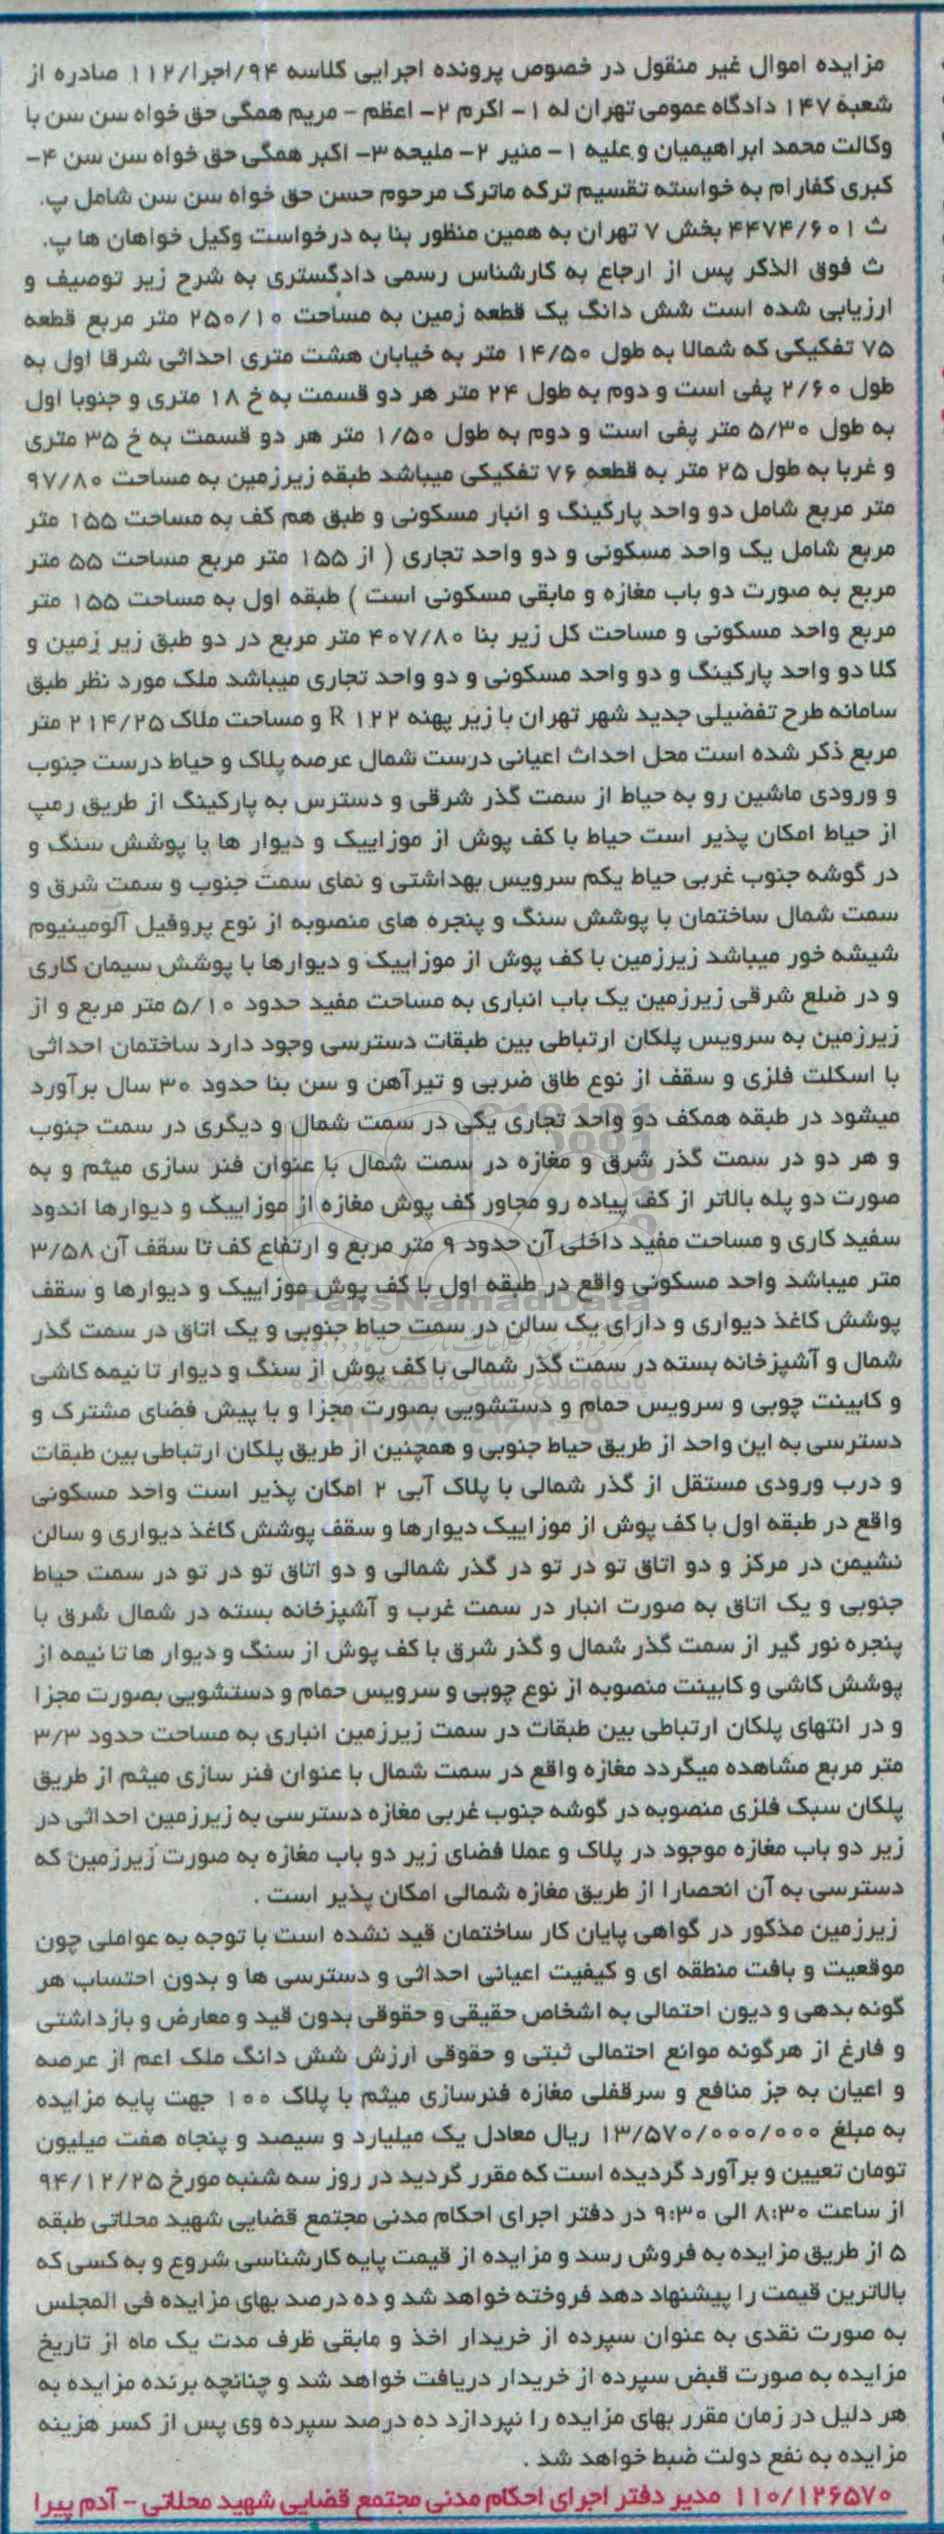 مزایده اموال غیر منقول در خصوص پرونده اجرایی کلاسه ۹۴/اجرا/۱۱۲ صادره از
شعبه ۱۴۷ دادگاه عمومی تهران له ۱- اکرم ۲- اعظم - مریم همگی حق خواه سن سن با
وکالت محمد ابراهیمیان و علیه ۱- منیر ۲- ملیحه ۳- اکبر همگی حق خواه سن سن ۴-
کبری کفارام به خواسته تقسیم ترکه ماترک مرحوم حسن حق خواه سن سن شامل پ.
ث ۴۴۷۴/۶۰۱ بخش ۷ تهران به همین منظور بنا به درخواست وکیل خواهان ها پ.
ث فوق الذکر پس از ارجاع به کارشناس رسمی دادگستری به شرح زیر توصیف و
ارزیابی شده است شش دانگ یک قطعه زمین به مساحت ۲۵۰/۱۰ متر مربع قطعه
۷۵ تفکیکی که شمالا به طول ۱۴/۵۰ متر به خیابان هشت متری احداثی شرقا اول به
طول ۲/۶۰ پفی است و دوم به طول ۲۴ متر هر دو قسمت به خ ۱۸ متری و جنوبا اول
به طول ۵/۳۰ متر پفی است و دوم به طول ۱/۵۰ متر هر دو قسمت به خ ۳۵ متری
و غربا به طول ۲۵ متر به قطعه ۷۶ تفکیکی میباشد طبقه زیرزمین به مساحت ۹۷/۸۰
متر مربع شامل دو واحد پارکینگ و انبار مسکونی و طبق هم کف به مساحت ۱۵۵ متر
مربع شامل یک واحد مسکونی و دو واحد تجاری ( از ۱۵۵ متر مربع مساحت ۵۵ متر
مربع به صورت دو باب مغازه و مابقی مسکونی است ) طبقه اول به مساحت ۱۵۵ متر
مربع واحد مسکونی و مساحت کل زیر بنا ۴۰۷/۸۰ متر مربع در دو طبق زیر زمین و
کلا دو واحد پارکینگ و دو واحد مسکونی و دو واحد تجاری میباشد ملک مورد نظر طبق
سامانه طرح تفضیلی جدید شهر تهران با زیر پهنه R ۱۲۲ و مساحت ملاک ۲۱۴/۲۵ متر
مربع ذکر شده است محل احداث اعیانی درست شمال عرصه پلاک و حیاط درست جنوب
و ورودی ماشین رو به حیاط از سمت گذر شرقی و دسترس به پارکینگ از طریق رمپ
از حیاط امکان پذیر است حیاط با کف پوش از موزاییک و دیوار ها با پوشش سنگ و
در گوشه جنوب غربی حیاط یکم سرویس بهداشتی و نمای سمت جنوب و سمت شرق و
سمت شمال ساختمان با پوشش سنگ و پنجره های منصوبه از نوع پروفیل آلومینیوم
شیشه خور میباشد زیرزمین با کف پوش از موزاییک و دیوارها با پوشش سیمان کاری
و در ضلع شرقی زیرزمین یک باب انباری به مساحت مفید حدود ۵/۱۰ متر مربع و از
زیرزمین به سرویس پلکان ارتباطی بین طبقات دسترسی وجود دارد ساختمان احداثی
با اسکلت فلزی و سقف از نوع طاق ضربی و تیرآهن و سن بنا حدود ۳۰ سال برآورد
میشود در طبقه همکف دو واحد تجاری یکی در سمت شمال و دیگری در سمت جنوب
و هر دو در سمت گذر شرق و مغازه در سمت شمال با عنوان فنر سازی میثم و به
صورت دو پله بالاتر از کف پیاده رو مجاور کف پوش مغازه از موزاییک و دیوارها اندود
سفید کاری و مساحت مفید داخلی آن حدود ۹ متر مربع و ارتفاع کف تا سقف آن ۳/۵۸
متر میباشد واحد مسکونی واقع در طبقه اول با کف پوش موزاییک و دیوارها و سقف
ParsNamadData
پوشش کاغذ دیواری و دارای یک سالن در سمت حیاط جنوبی و یک اتاق در سمت گذر
شمال و آشپزخانه بسته در سمت گذر شمالی با کف پوش از سنگ و دیوار تا نیمه کاشی
پایگاه اطلاع رسانی مناقصه و مزایده
و کابینت چوبی و سرویس حمام و دستشویی بصورت مجزا و با پیش فضای مشترک و
دسترسی به این واحد از طریق حیاط جنوبی و همچنین از طریق پلکان ارتباطی بین طبقات
و درب ورودی مستقل از گذر شمالی با پلاک آبی ۲ امکان پذیر است واحد مسکونی
واقع در طبقه اول با کف پوش از موزاییک دیوارها و سقف پوشش کاغذ دیواری و سالن
نشیمن در مرکز و دو اتاق تو در تو در گذر شمالی و دو اتاق تو در تو در سمت حیاط
جنوبی و یک اتاق به صورت انبار در سمت غرب و آشپزخانه بسته در شمال شرق با
پنجره نور گیر از سمت گذر شمال و گذر شرق با کف پوش از سنگ و دیوار ها تا نیمه از
پوشش کاشی و کابینت منصوبه از نوع چوبی و سرویس حمام و دستشویی بصورت مجزا
و در انتهای پلکان ارتباطی بین طبقات در سمت زیرزمین انباری به مساحت حدود ۳/۳
متر مربع مشاهده میگردد مغازه واقع در سمت شمال با عنوان فنر سازی میثم از طریق
پلکان سبک فلزی منصوبه در گوشه جنوب غربی مغازه دسترسی به زیرزمین احداثی در
زیر دو باب مغازه موجود در پلاک و عملا فضای زیر دو باب مغازه به صورت زیرزمین که
دسترسی به آن انحصارا از طریق مغازه شمالی امکان پذیر است .
زیرزمین مذکور در گواهی پایان کار ساختمان قید نشده است با توجه به عواملی چون
موقعیت و بافت منطقه ای و کیفیت اعیانی احداثی و دسترسی ها و بدون احتساب هر
گونه بدهی و دیون احتمالی به اشخاص حقیقی و حقوقی بدون قید و معارض و بازداشتی
و فارغ از هرگونه موانع احتمالی ثبتی و حقوقی ارزش شش دانگ ملک اعم از عرصه
و اعیان به جز منافع و سرقفلی مغازه فنرسازی میثم با پلاک ۱۰۰ جهت پایه مزایده
به مبلغ ۱۳/۵۷۰/۰۰۰/۰۰۰ ریال معادل یک میلیارد و سیصد و پنجاه هفت میلیون
تومان تعیین و برآورد گردیده است که مقرر گردید در روز سه شنبه مورخ ۹۴/۱۲/۲۵
از ساعت ۸:۳۰ الی ۹:۳۰ در دفتر اجرای احکام مدنی مجتمع قضایی شهید محلاتی طبقه
۵ از طریق مزایده به فروش رسد و مزایده از قیمت پایه کارشناسی شروع و به کسی که
بالاترین قیمت را پیشنهاد دهد فروخته خواهد شد و ده درصد بهای مزایده فی المجلس
به صورت نقدی به عنوان سپرده از خریدار اخذ و مابقی ظرف مدت یک ماه از تاریخ
مزایده به صورت قبض سپرده از خریدار دریافت خواهد شد و چنانچه برنده مزایده به
هر دلیل در زمان مقرر بهای مزایده را نپردازد ده درصد سپرده وی پس از کسر هزینه
مزایده به نفع دولت ضبط خواهد شد .
۱۱۰/۱۲۶۵۷۰ مدیر دفتر اجرای احکام مدنی مجتمع قضایی شهید محلاتی - آدم پیرا